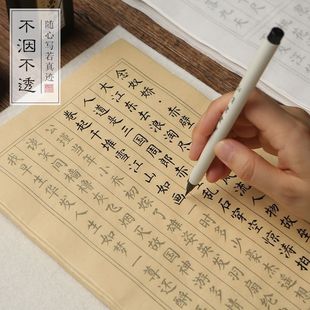 不洇不透
随心写若真迹
念奴娇·赤壁
大江东去浪淘尽
流人物故
人道是三国周郎赤壁
乱石穿空惊涛拍
卷起千堆雪江山如画
多少豪杰遥
公瑾当年小乔初嫁了雄姿英发羽扇
谈笑间樯橹灰飞烟灭故国神游多
我早生华发人生如梦一尊还酹